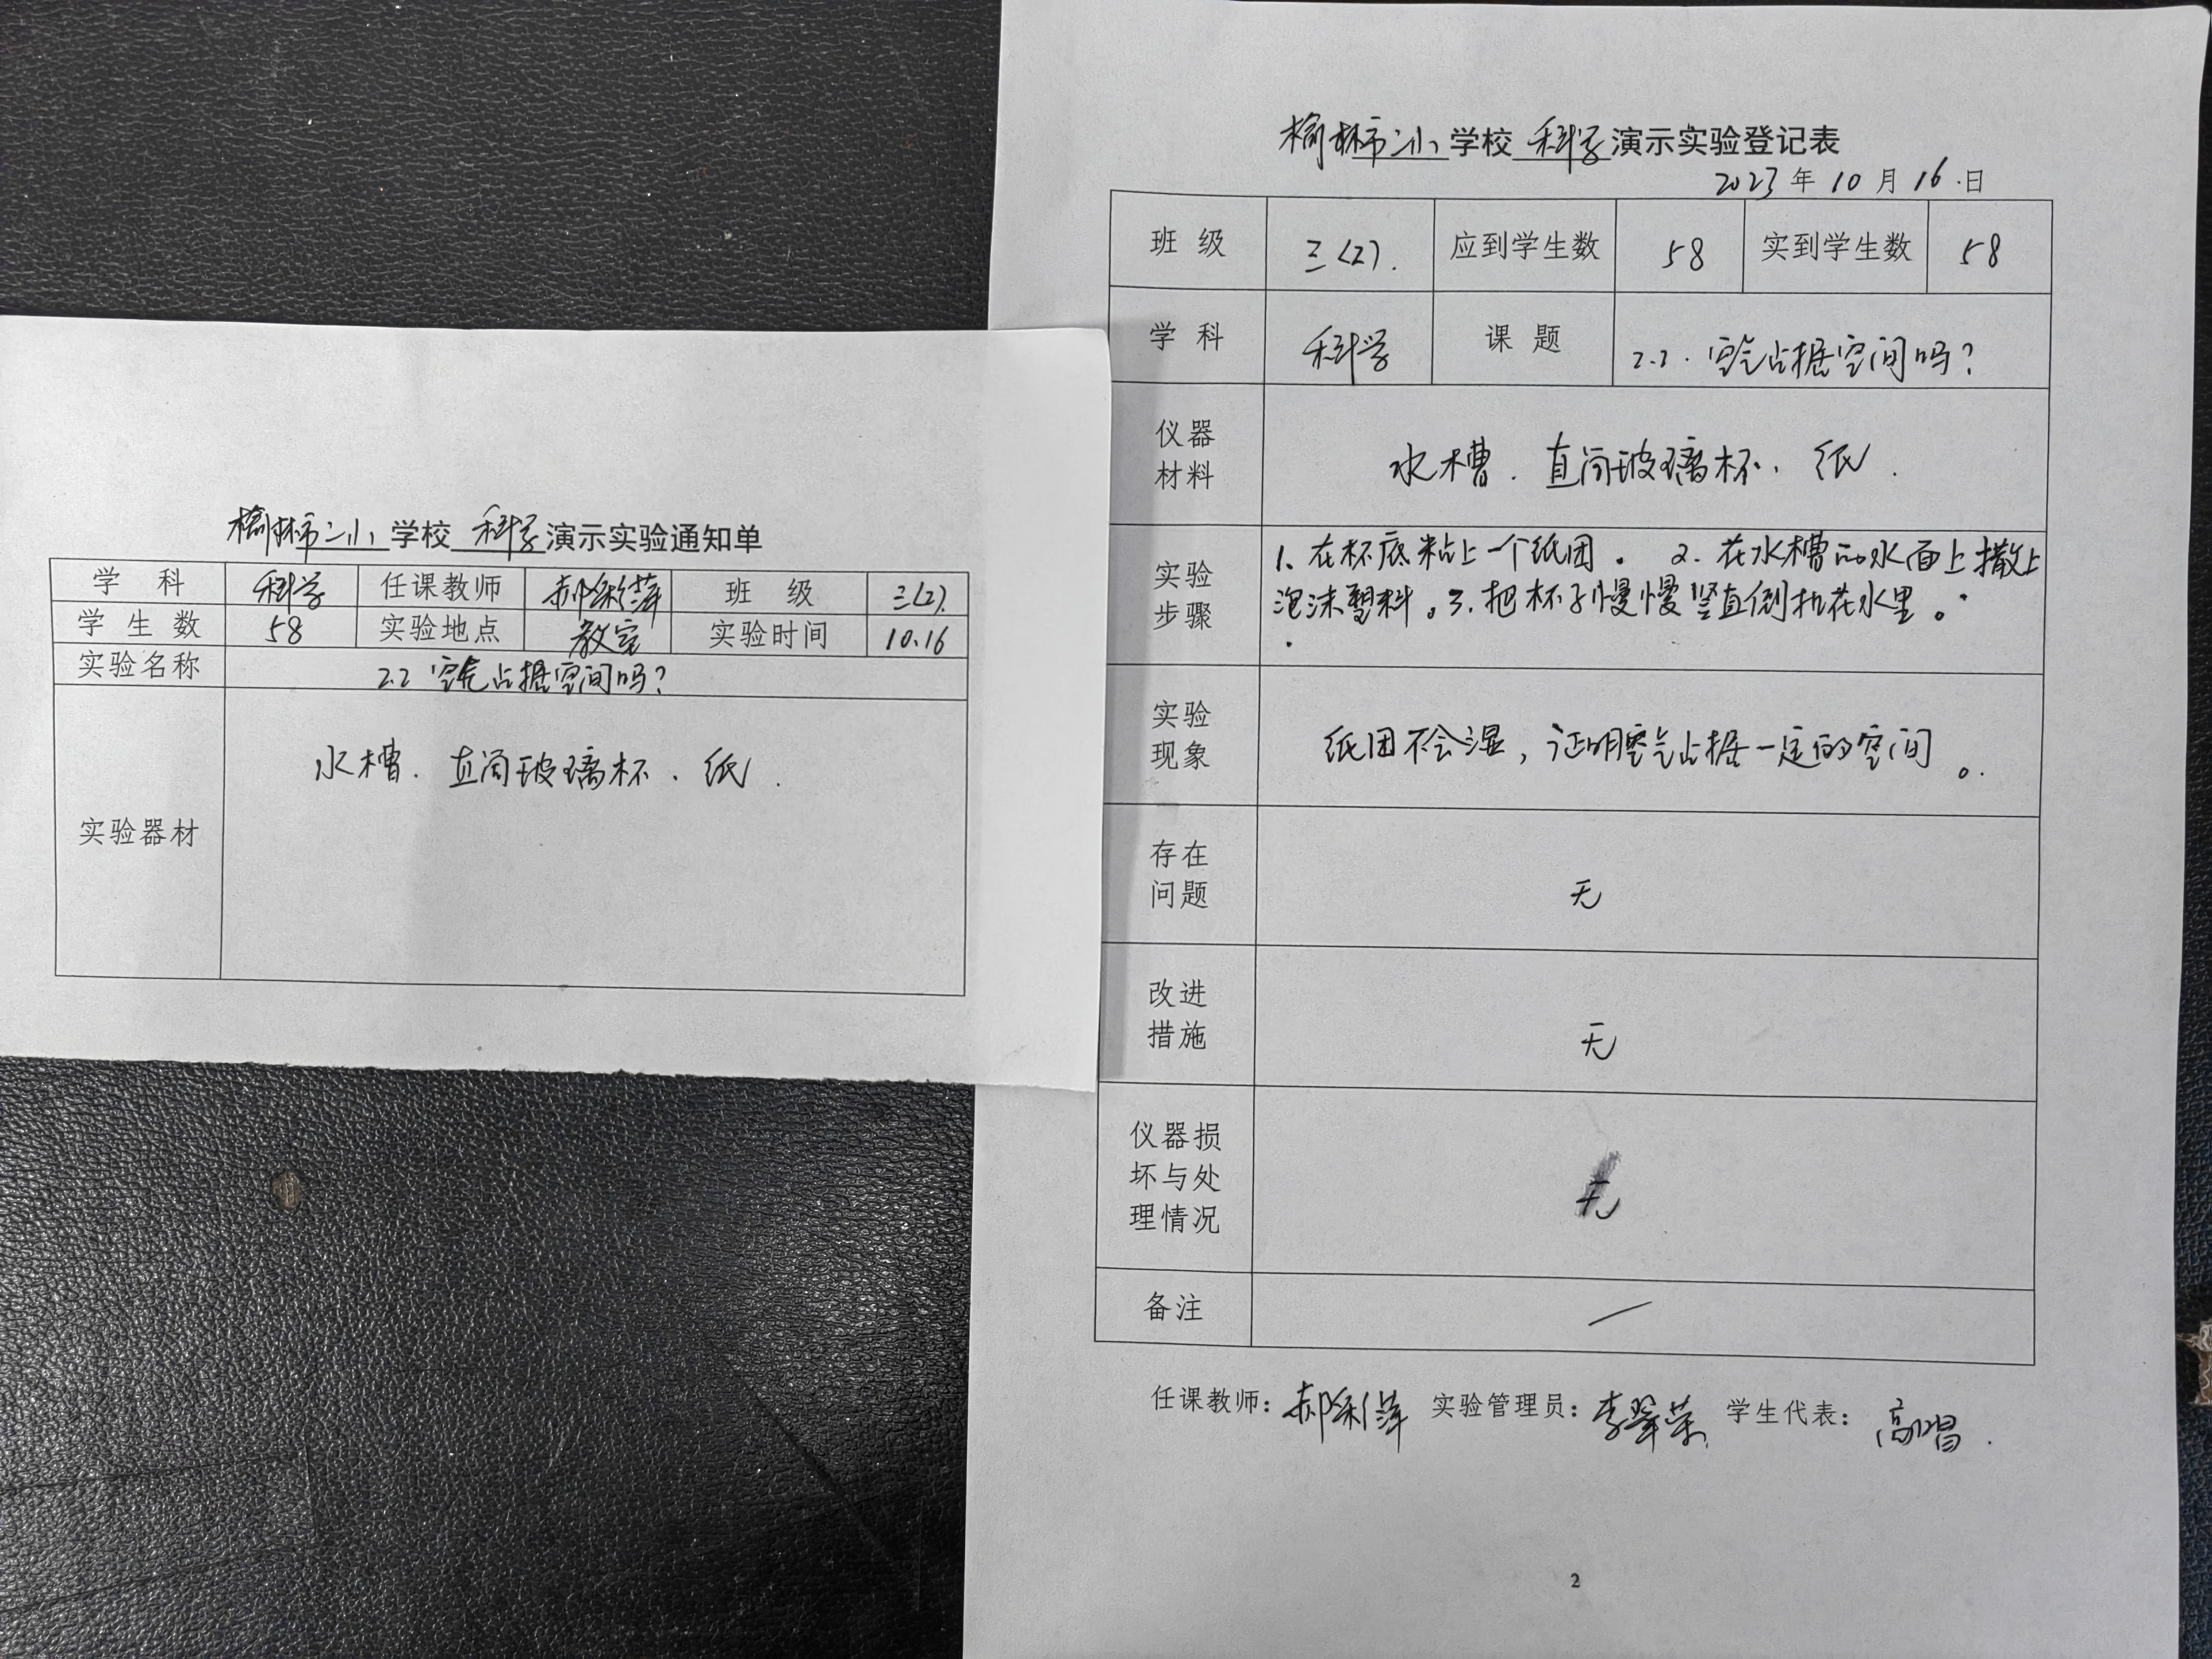 榆林市二小学校科学演示实验通知单
学科 科学 任课教师 郝彩萍 班级 三(2).
学生数 58 实验地点 教室 实验时间 10.16
实验名称 2.2 空气占据空间吗?
实验器材 水槽. 直筒玻璃杯、纸.
榆林市二小学校科学演示实验登记表
2023年10月16日
班级 三(2). 应到学生数 58 实到学生数 58
学科 科学 课题 2.2.空气占据空间吗?
仪器材料 水槽. 直筒玻璃杯、纸.
实验步骤 1、在杯底粘上一个纸团。 2.在水槽的水面上撒上
泡沫塑料。3.把杯子慢慢竖直倒扣在水里。
实验现象 纸团不会湿,证明空气占据一定的空间。
存在问题 无
改进措施 无
仪器损坏与处理情况 无
备注 /
任课教师:郝彩萍 实验管理员:李翠荣 学生代表:高唱.
2